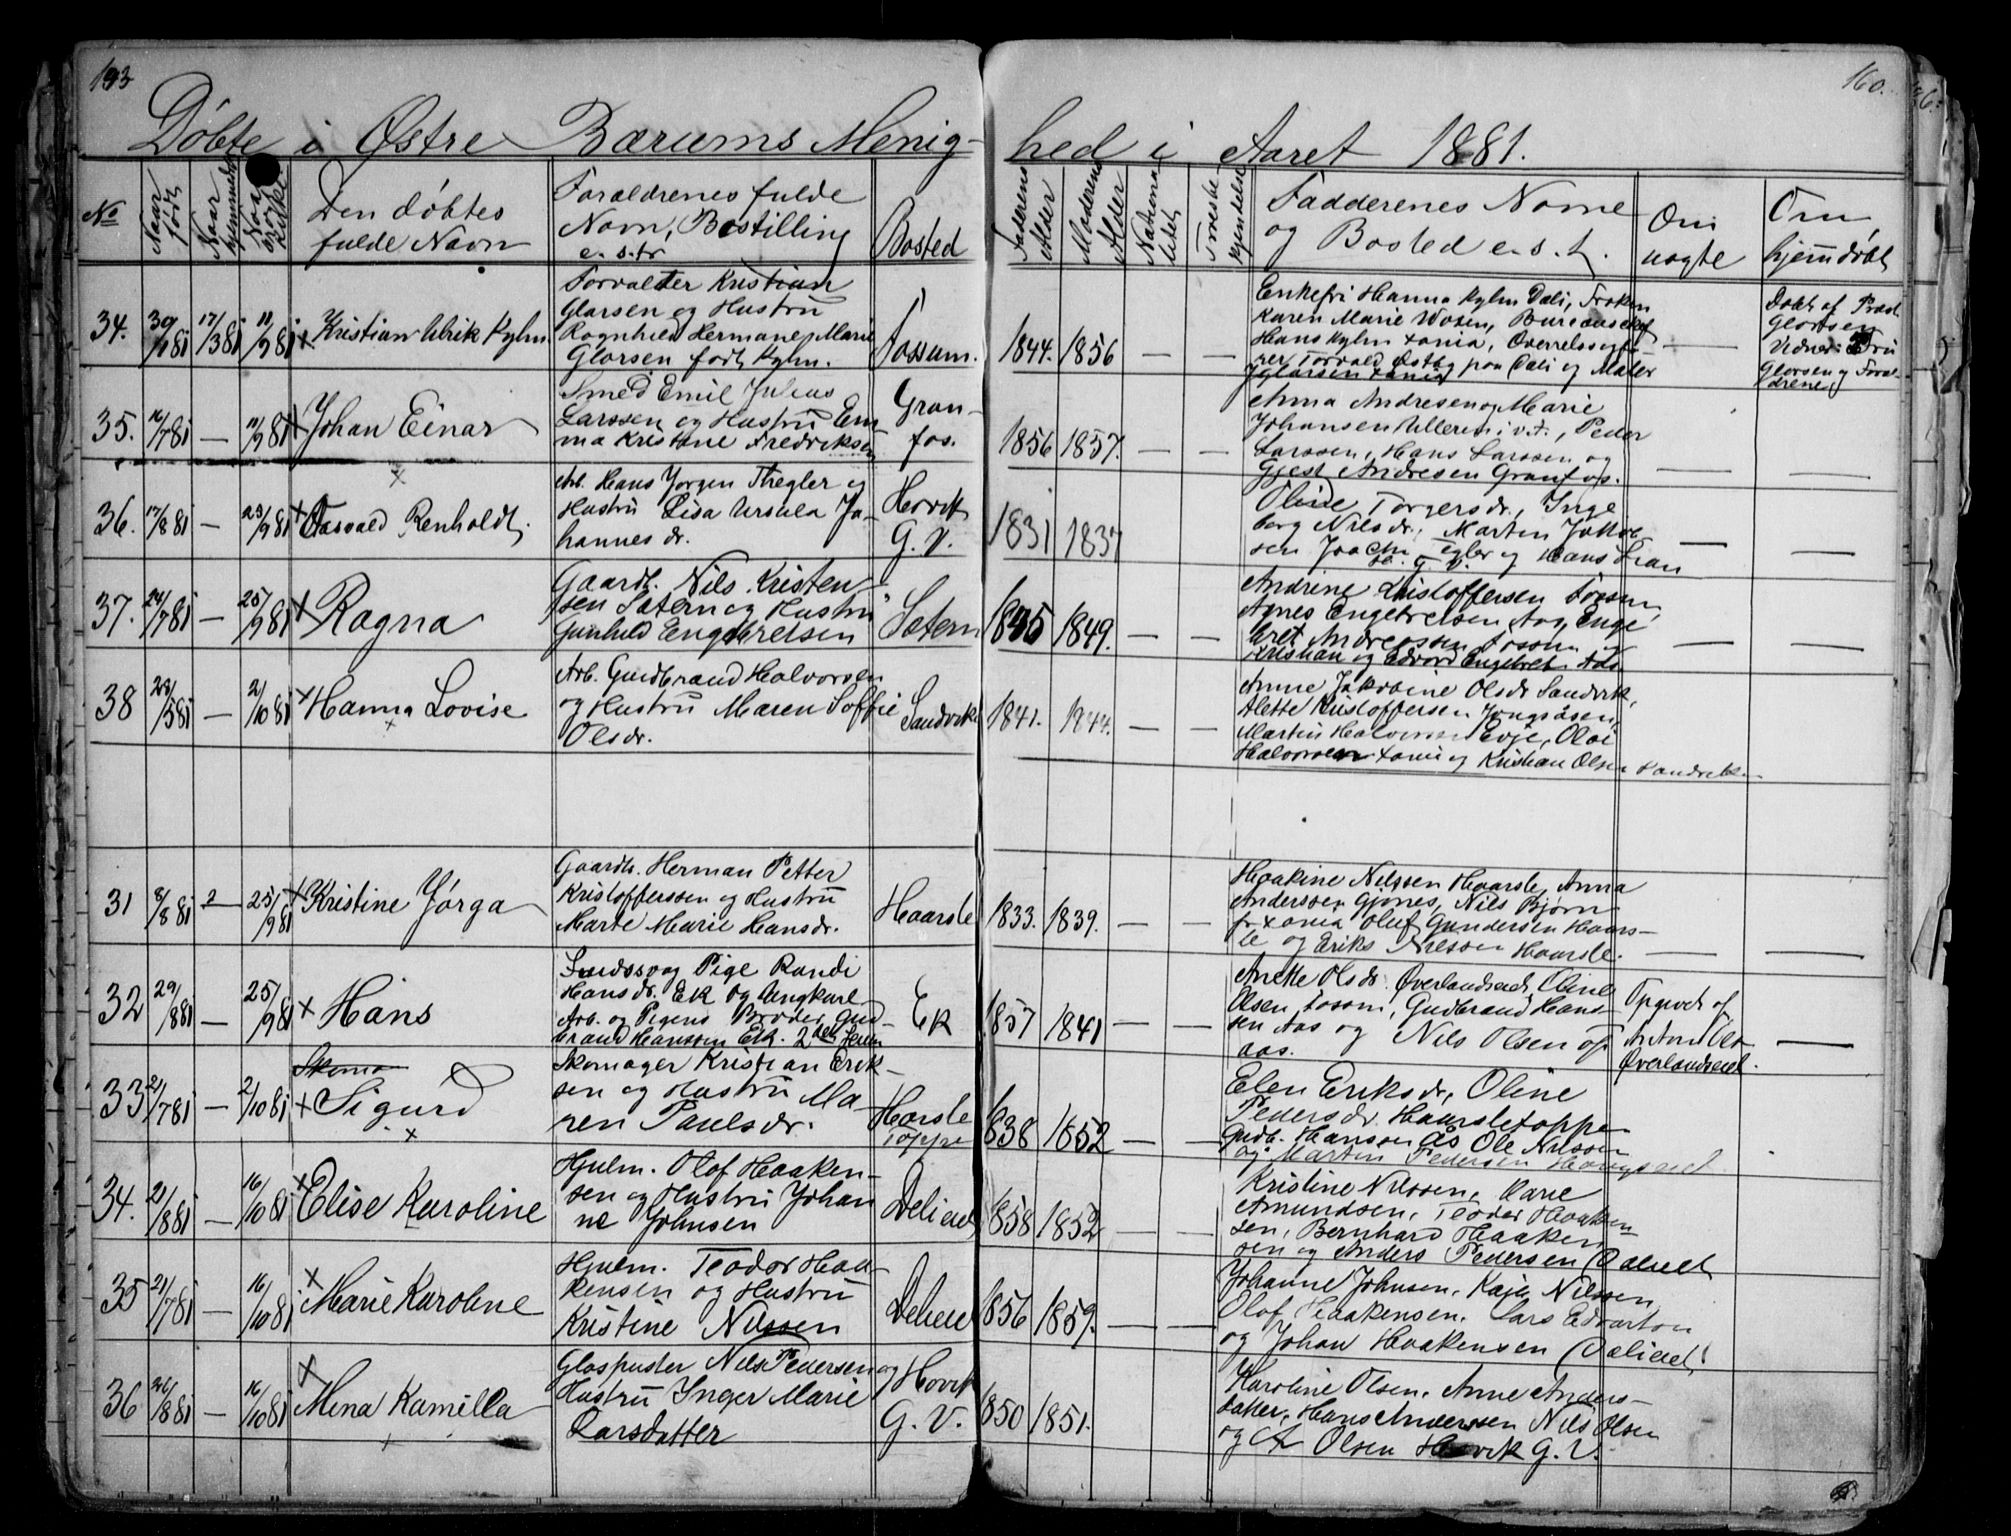 193
160.
Døbte i Østre Bærums Menig-
hed i Aaret 1881.
No
Naar født
Naar hjemmedøbt
Den døbtes
fulde Navn
Forældrenes fulde
Navn, Bestilling
e. s. fr.
Bosted
Faderens Alder
Moderens Alder
Nationalitet
Troesbekjendelse
Faddernes Navne
og Bosted e. s. fr.
Om
uægte
Om
hjemdøbt
34.
30/1 81
17/3 81
11/9 81
Kristian Ulrik Kylm
Forvalter Kristian
Glørsen og Hustru
Ragnhild Hermane Marie
Glørsen født Kylm.
Fossum.
1844. 1856 — —
Enkefru Hanna Kylm Dæli, Frøken
Karen Marie Bureauchef
Hans Kylm Xania,
Torvald Østby paa Dæli og Maler
Glørsen Xania
—
Døbt af Præst
Glørsen
Vidner: Fru
Glørsen og Foræl-
drene
35.
16/7 81 — 11/9 81
Johan Einar
Smed Emil Julius
Larssen og Hustru Em-
ma Kristine Fredriksen
Gran-
fos.
1856 1857. — —
Anna Andresen og Marie
Johansen Ullern i v. A., Peder
Larssen, Hans Larssen og
Gjest Andresen Granfos.
— —
36.
17/8 81 — 25/9 81
Renholdt
Arb. Hans Jørgen Thegler og
Hustru Lisa Ursula Jo-
hannes dr.
Høvik
G. V.
1831 1837
Oline Torgersdr, Inge
borg Nilsdr, Marten Jakob
sen og Hans
H. G. V.
— —
37.
24/7 81 — 25/9 81
Ragna
Gaardb. Nils Kristen
sen Sætern og Hustru
Gunhild Engebretsen
Sætern
1845 1849. — —
Andrine Kristoffersen Fossum,
Agnes Engebretsen Aas, Enge
bret Andreassen Fossum
Kristian og Edvard Engebret. Aas
— —
38
28/5 81 — 2/10 81
Hanna Lovise
Arb. Gudbrand Halvorsen
og Hustru Maren Soffie
Olsdr.
Sandvik
1841. 1844. — —
Anne Jakobine Olsdr Sandvik,
Alette Kristoffersen Jongsåsen,
Martin Halvorsen Evje, Olai
Halvorsen Xania og Kristian Olsen Sandviken
31
8/8 81 2 25/9 81
Kristine Jørga
Gaardb. Herman Petter
Kristofferssen og Hustru
Marte Marie Hansdr.
Haarsle
1833. 1839. — —
Haakine Nilssen Haarsle, Anna
Anderssen Gjønes, Nils Bjørn
fr Xania Oluf Gundersen Haars-
le og Eriks Nilssen Haarsle.
— —
32
29/8 81 — 25/9 81
Hans
Pige Randi
Hansdr. Ek og Ungkarl
Arb. og Pigens Broder Gud-
brand Hanssen Ek.
Ek
1857 1841 — —
Anke Olsdr. Øverlandseiet, Oline
Olsen Fossum, Gudbrand Hans-
sen Aas og Nils Olsen op
aas.
Opgivet af
Øverlandseiet.
—
33
21/7 81 — 2/10 81
Skoma
Sigurd
Skomager Kristian Erik-
sen og Hustru Ma-
ren Paulsdr.
Haarsle
toppe
1838 1852 — —
Elen Eriksdr, Oline
Pedersdr. Haarsletoppe
Gudb. Hanssen Ås Ole Nilssen
og Martin Pedersen
34.
21/8 81 — 16/10 81
Elise Karoline
Hjulm. Olof Haaken-
sen og Hustru Johan
ne Johnsen
Delieiet
1858 1852 — —
Kristine Nilssen, Karie
Amundsen, Teodor Haaken
sen, Bernhard Haaken
sen og Anders Pedersen Dælieiet
35
21/7 81 — 16/10 81
Marie Karoline
Hjulm. Teodor Haa-
kensen og Hustru
Kristine Nilssen
Delieiet
1856 1859. — —
Johanne Johnsen, Kaja Nilssen,
Olof Haakensen, Lars Edvarton
og Johan Haakensen Dælieiet.
36
26/8 81 — 16/10 81
Mena Kamilla
Glaspuster Nils Pedersen og
Hustru Inger Marie
Larsdatter
Høvik
G. V.
1850 1851.
Karoline Olsen, Anne Anders-
datter, Hans Anderssen Nils Olsen
og A Olsen Høvik G. V.